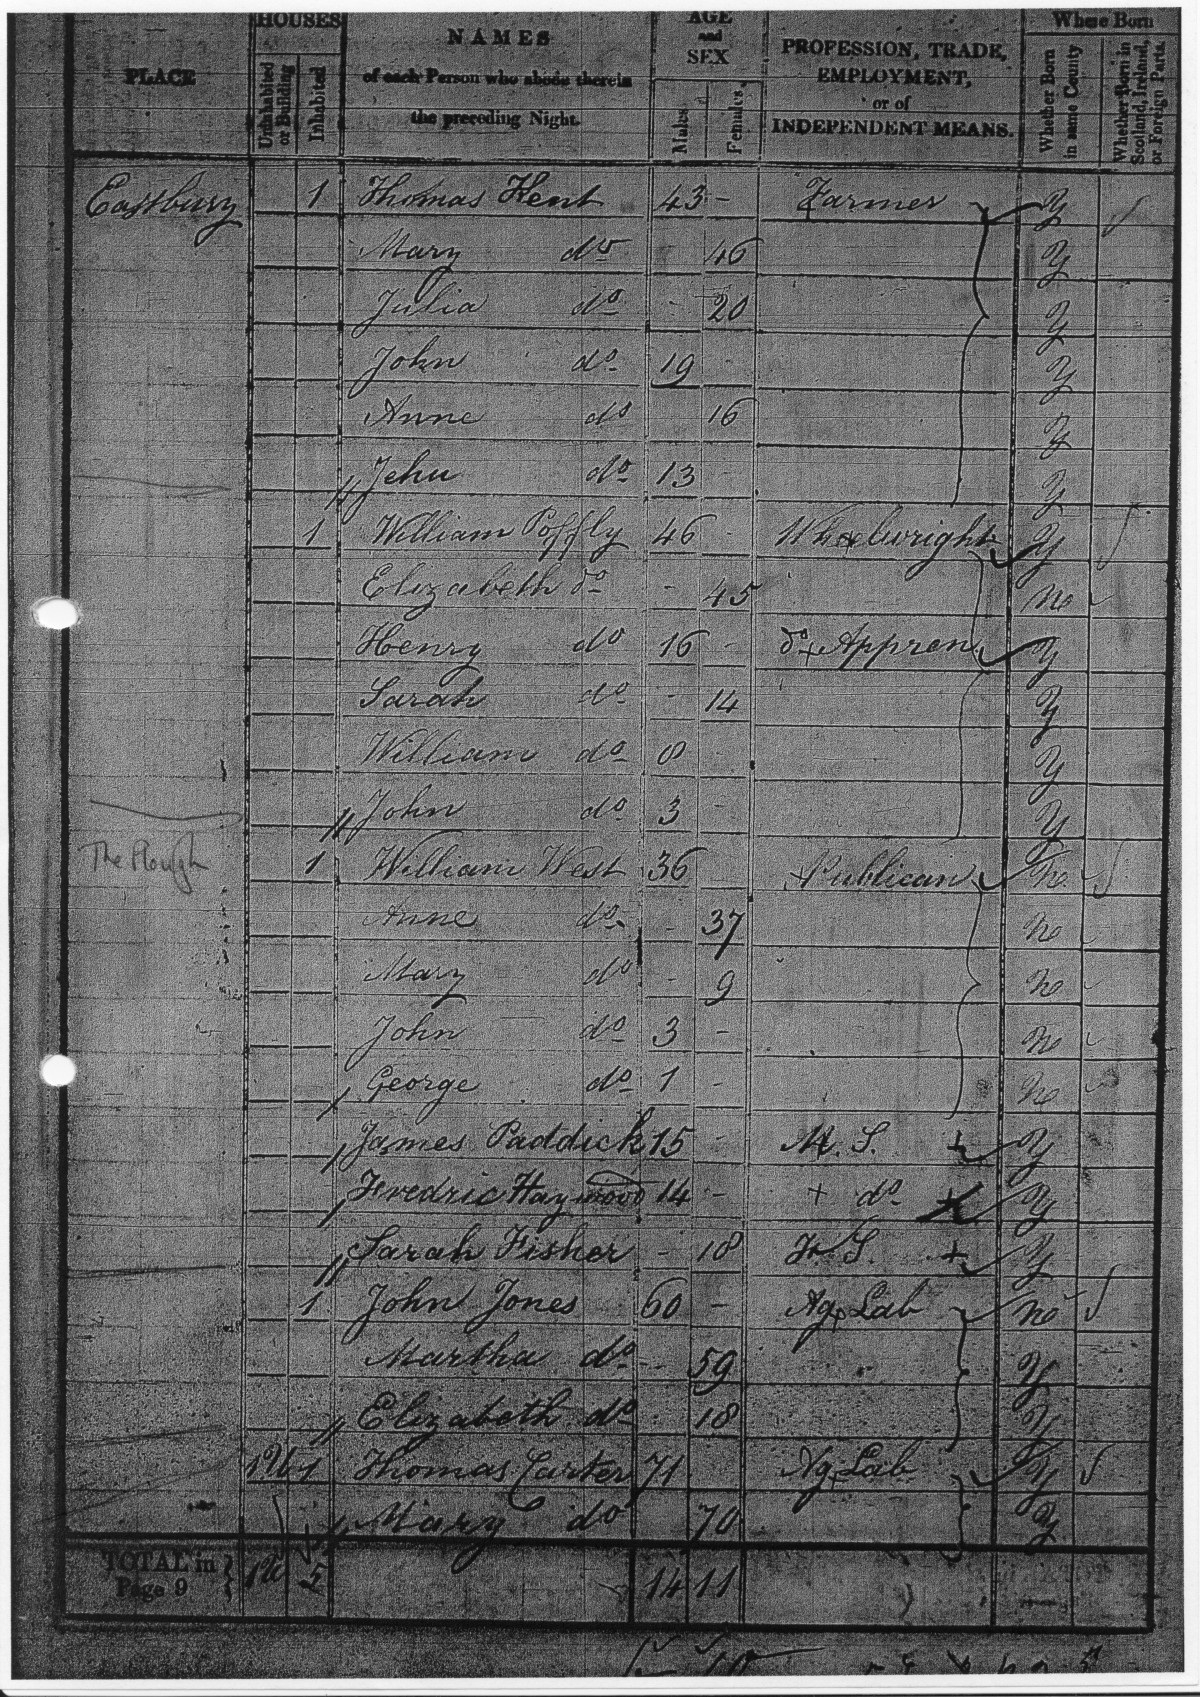 PLACE HOUSES Uninhabited or Building Inhabited NAMES of each Person who abode therein the preceding Night. AGE and SEX Males Females PROFESSION, TRADE, EMPLOYMENT, or of INDEPENDENT MEANS. Where Born Whether Born in same County Whether Born in Scotland, Ireland, or Foreign Parts.
Eastbury 1 Thomas Kent 43 - Farmer Y
Mary do 46 Y
Julia do - 20 Y
John do 19 - Y
Anne do 16 Y
Jehu do 13 - Y
1 William Poffly 46 - Wheelwright Y
Elizabeth do - 45 No
Henry do 16 - do Appren. Y
Sarah do - 14 Y
William do 8 - Y
John do 3 - Y
The Plough 1 William West 36 - Publican No
Anne do - 37 No
Mary do - 9 No
John do 3 - No
George do 1 - No
James Paddick 15 - M. S. Y
Fredric Haywood 14 - do Y
Sarah Fisher - 18 F. S. Y
1 John Jones 60 - Ag. Lab No
Martha do - 59 Y
Elizabeth do 18 Y
1 Thomas Carter 71 Ag. Lab Y
Mary do 70 Y
TOTAL in Page 9 5 14 11